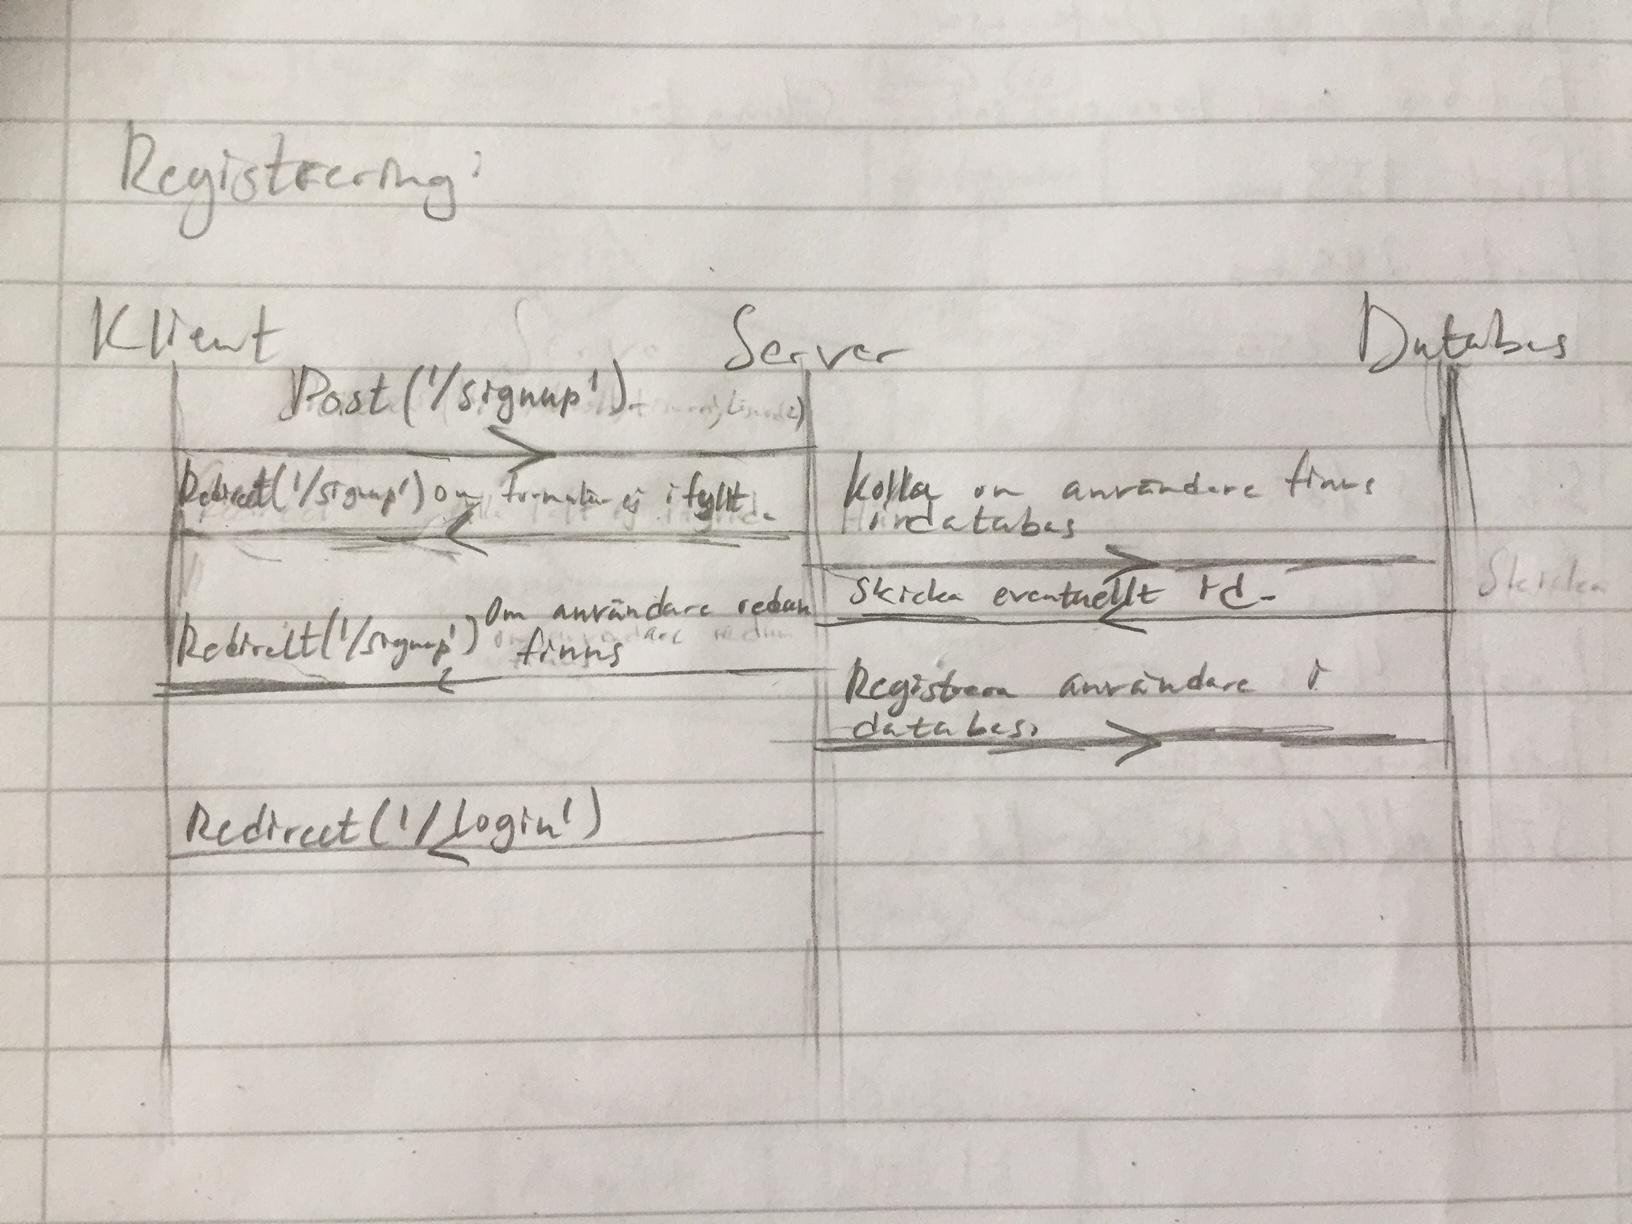 Registrering:
Klient Server Databas
Post('/signup')
Redirect('/signup') om formulär ej ifyllt.
Kolla om användare finns
i databas
Skicka eventuellt id.
Skicka
Om användare redan
Redirect('/signup') finns
Registrera användare i
databas.
Redirect('/login')